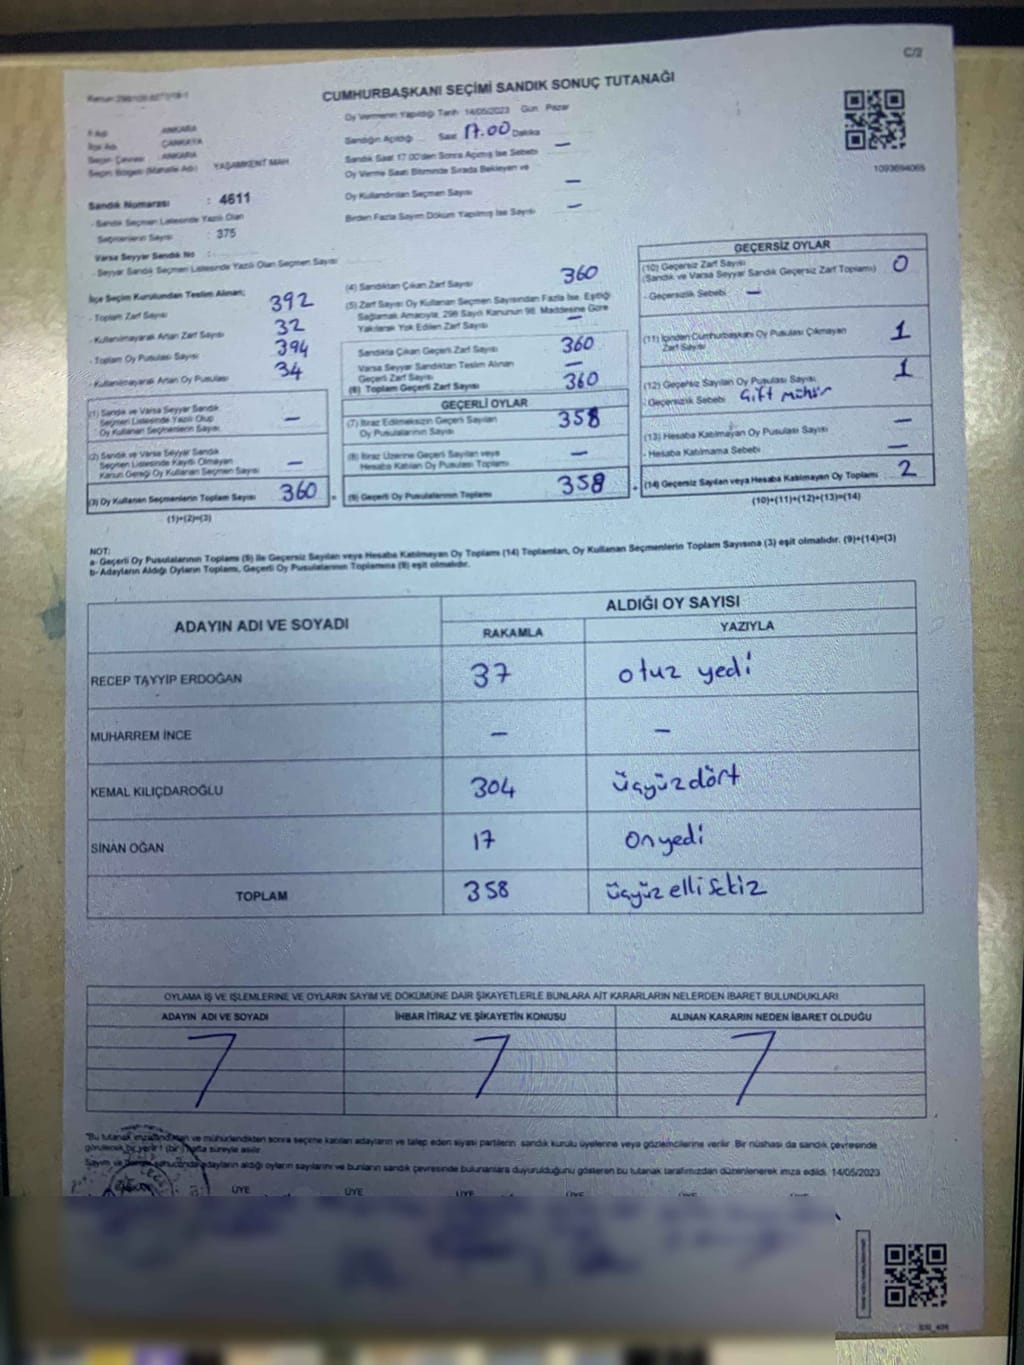 C/2
CUMHURBAŞKANI SEÇİMİ SANDIK SONUÇ TUTANAĞI
Oy Vermenin Yapıldığı Tarih 14/05/2023 Gün Pazar
Sandığın Açıldığı Saat 17.00 Dakika
Sandık Saat 17.00'den Sonra Açılmış İse Sebebi —
Oy Verme Saati Bitiminde Sırada Bekleyen ve
Oy Kullandırılan Seçmen Sayısı —
Birden Fazla Sayım Döküm Yapılmış İse Sayısı —
1093694065
İl Adı ANKARA
İlçe Adı ÇANKAYA
Seçim Çevresi : ANKARA
Seçim Bölgesi (Mahalle Adı) : YAŞAMKENT MAH.
Sandık Numarası : 4611
- Sandık Seçmen Listesinde Yazılı Olan
Seçmenlerin Sayısı : 375
Varsa Seyyar Sandık No :
- Seyyar Sandık Seçmen Listesinde Yazılı Olan Seçmen Sayısı
İlçe Seçim Kurulundan Teslim Alınan;
- Toplam Zarf Sayısı 392
- Kullanılmayarak Artan Zarf Sayısı 32
- Toplam Oy Pusulası Sayısı 394
- Kullanılmayarak Artan Oy Pusulası 34
(1) Sandık ve Varsa Seyyar Sandık
Seçmen Listesinde Yazılı Olup
Oy Kullanan Seçmenlerin Sayısı —
(2) Sandık ve Varsa Seyyar Sandık
Seçmen Listesinde Kayıtlı Olmayan
Kanun Gereği Oy Kullanan Seçmen Sayısı —
(3) Oy Kullanan Seçmenlerin Toplam Sayısı 360
(1)+(2)=(3)
(4) Sandıktan Çıkan Zarf Sayısı 360
(5) Zarf Sayısı Oy Kullanan Seçmen Sayısından Fazla İse, Eşitliği
Sağlamak Amacıyla, 298 Sayılı Kanunun 98. Maddesine Göre
Yakılarak Yok Edilen Zarf Sayısı —
Sandıkta Çıkan Geçerli Zarf Sayısı 360
Varsa Seyyar Sandıktan Teslim Alınan
Geçerli Zarf Sayısı —
(6) Toplam Geçerli Zarf Sayısı 360
GEÇERLİ OYLAR
(7) İtiraz Edilmeksizin Geçerli Sayılan
Oy Pusulalarının Sayısı 358
(8) İtiraz Üzerine Geçerli Sayılan veya
Hesaba Katılan Oy Pusulası Toplamı —
(9) Geçerli Oy Pusulalarının Toplamı 358
GEÇERSİZ OYLAR
(10) Geçersiz Zarf Sayısı
(Sandık ve Varsa Seyyar Sandık Geçersiz Zarf Toplamı) 0
- Geçersizlik Sebebi —
(11) İçinden Cumhurbaşkanı Oy Pusulası Çıkmayan
Zarf Sayısı 1
(12) Geçersiz Sayılan Oy Pusulası Sayısı 1
- Geçersizlik Sebebi Çift mühür
(13) Hesaba Katılmayan Oy Pusulası Sayısı —
- Hesaba Katılmama Sebebi —
(14) Geçersiz Sayılan veya Hesaba Katılmayan Oy Toplamı 2
(10)+(11)+(12)+(13)=(14)
NOT:
a- Geçerli Oy Pusulalarının Toplamı (9) ile Geçersiz Sayılan veya Hesaba Katılmayan Oy Toplamı (14) Toplamları, Oy Kullanan Seçmenlerin Toplam Sayısına (3) eşit olmalıdır. (9)+(14)=(3)
b- Adayların Aldığı Oyların Toplamı, Geçerli Oy Pusulalarının Toplamına (9) eşit olmalıdır.
ADAYIN ADI VE SOYADI
ALDIĞI OY SAYISI
RAKAMLA YAZIYLA
RECEP TAYYİP ERDOĞAN 37 otuz yedi
MUHARREM İNCE — —
KEMAL KILIÇDAROĞLU 304 üçyüzdört
SİNAN OĞAN 17 onyedi
TOPLAM 358 üçyüz elli sekiz
OYLAMA İŞ VE İŞLEMLERİNE VE OYLARIN SAYIM VE DÖKÜMÜNE DAİR ŞİKAYETLERLE BUNLARA AİT KARARLARIN NELERDEN İBARET BULUNDUKLARI
ADAYIN ADI VE SOYADI İHBAR İTİRAZ VE ŞİKAYETİN KONUSU ALINAN KARARIN NEDEN İBARET OLDUĞU
"Bu tutanak imzalandıktan ve mühürlendikten sonra seçime katılan adayların ve talep eden siyasi partilerin sandık kurulu üyelerine veya gözlemcilerine verilir. Bir nüshası da sandık çevresinde
görülecek bir yere 1 (bir) hafta süreyle asılır.
Sayım ve döküm sonucunda adayların aldığı oyların sayılarını ve bunların sandık çevresinde bulunanlara duyurulduğunu gösteren bu tutanak tarafımızdan düzenlenerek imza edildi. 14/05/2023
ÜYE ÜYE ÜYE ÜYE ÜYE ÜYE